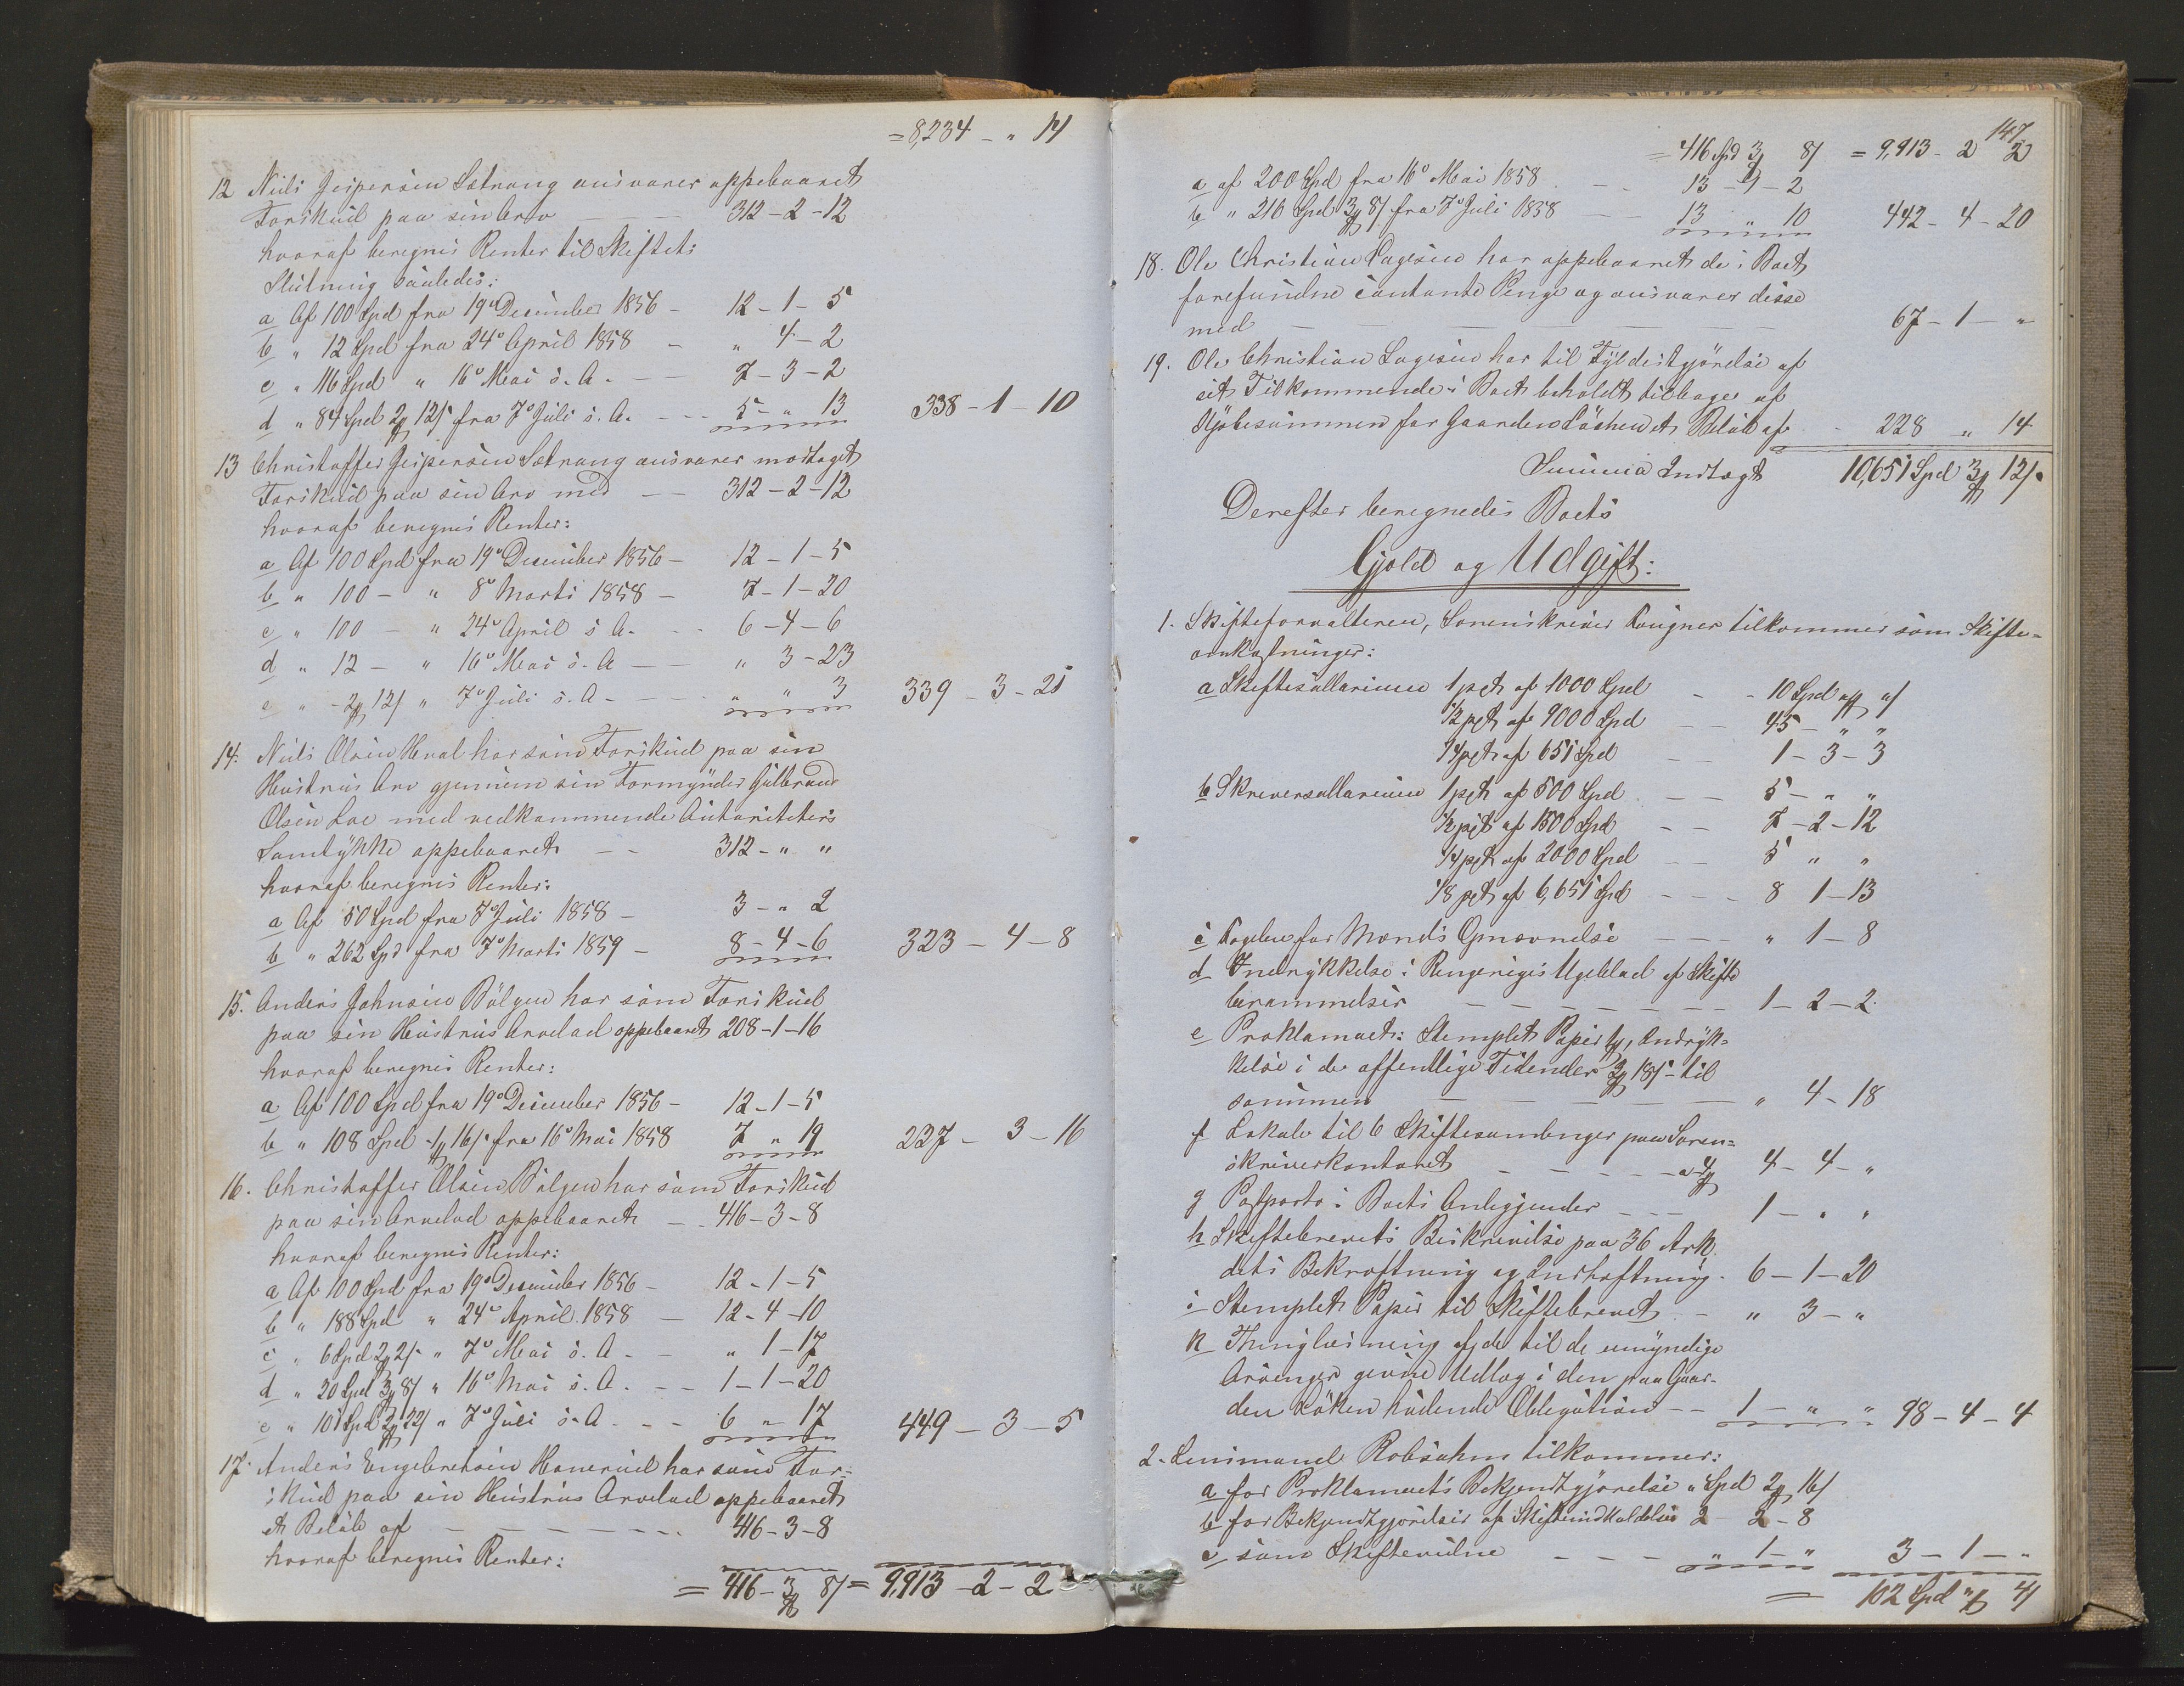 = 8,234 - " 14
12 Niels Jespersen Sætrang ansvarer oppebaaret
Forskud paa sin Arv — — 312-2-12
hvoraf beregnes Renter til Skiftets
Slutning saaledes:
a Af 100 Spd fra 19de December 1856 - 12-1-5
b " 12 Spd fra 24de April 1858 - " 4-2
c " 116 Spd " 16de Mai s. A. — 7-3-2
d " 84 Spd 2 ₰ 12/ fra 7de Juli s. A. - - 5 - " 13 338-1-10
13 Christoffer Jespersen Sætrang ansvarer modtaget
Forskud paa sin Arv med — — 312-2-12
hvoraf beregnes Renter:
a Af 100 Spd fra 19de December 1856 - 12-1-5
b " 100 - " 8de Marts 1858 - 7-1-20
c " 100 — " 24de April s A. - - 6-4-6
d " 12 - " 16de Mai s. A — — " 3-23
e " - 2 ₰ 12/ " 7de Juli s. A - — " " 3 339-3-21
14. Niels Olsen Hval har som Forskud paa sin
Hustrus Arv gjennem sin Formynder Gulbrand
Olsen Loe med vedkommende Autoriteters
Samtykke oppebaaret — — 312 - " "
hvoraf beregnes Renter:
a Af 50 Spd fra 7de Juli 1858 - 3 - " 2
b " 262 Spd fra 7de Marts 1859 - 8-4-6 323-4-8
15. Anders Johnsen Bølgen har som Forskud
paa sin Hustrus Arvelod oppebaaret 208-1-16
hvoraf beregnes Renter:
a Af 100 Spd fra 19de December 1856 - 12-1-5
b " 108 Spd 1 ₰ 16/ fra 16de Mai 1858 7 " 19 227-3-16
16. Christoffer Olsen Bølgen har som Forskud
paa sin Arvelod oppebaaret — - 416-3-8
hvoraf beregnes Renter:
a Af 100 Spd fra 19de December 1856 - 12-1-5
b " 188 Spd " 24de April 1858 — 12-4-10
c " 6 Spd 2 ₰ 2/ " 7de Mai s. A - — " 1-17
d " 20 Spd 3 ₰ 8/ " 16de Mai s. A. - - 1-1-20
e " 101 Spd 2 ₰ 22/ " 7de Juli s. A - - 6 " 17 449-3-5
17. Anders Engebretsen Honerud har som For-
skud paa sin Hustrus Arvelod oppebaaret
et Beløb af — — — 416-3-8
hvoraf beregnes Renter:
= 416-3 ₰ 8/ = 9,913-2-2
147
= 416 Spd 3 ₰ 8/ = 9,913-2 2
a af 200 Spd fra 16de Mai 1858 - - 13-1-2
b " 216 Spd 3 ₰ 8/ fra 7de Juli 1858 — 13 " 10 442-4-20
18. Ole Christian Lagesen har oppebaaret de i Boet
forefundne contante Penge og ansvarer disse
med — — — — 67-1-"
19. Ole Christian Lagesen har til Fyldestgjørelse af
sit Tilkommende i Boet beholdt tilbage af
Kjøbesummen for Gaarden Løken et Beløb af - 228 " 14
Summa Indtægt 10,651 Spd 3 ₰ 12/.
Derefter beregnedes Boets
Gjæld og Udgift:
1. Skifteforvalteren, Sorenskriver tilkommer som Skifte-
omkostninger:
a Skiftesallarium 1 pct af 1000 Spd - - 10 Spd " ₰ "/
1/2 pct af 9000 Spd — 45 - " "
1/4 pct af 651 Spd — 1-3-3
b Skriversallarium 1 pct af 500 Spd — 5 - " "
1/2 pct af 1500 Spd — 7-2-12
1/4 pct af 2000 Spd — 5 " "
1/8 pct af 6,651 Spd — - 8 1-13
c Fogden for Mænds Opnævnelse — " 1-8
d Indrykkelse i Ringeriges Ugeblad af Skifte
berammelser — — — 1-2-2
e Proklamaet: Stemplet Papir 1 ₰, Indryk-
kelse i de offentlige Tidender 3 ₰ 18/ - til
sammen — — — " 4-18
f Lokale til 6 Skiftesamlinger paa Soren-
skriverkontoret — — a 4 ₰ 4-4-"
g Postporto i Boets Anliggender — 1 - " "
h Skiftebrevets Beskrivelse paa 36 Ark.
dets Bekræftning og Indhæftning - 6-1-20
i Stemplet Papir til Skiftebrevet - " 3-"
k Thinglæsning af de til de umyndige
Arvinger givne Udlæg i den paa Gaar-
den Løken hæftende Obligation - - 1 - " " 98-4-4
2. Lensmand Robsahm tilkommer:
a for Proklamaets Bekjendtgjørelse " Spd 2 ₰ 16/
b for Bekjendtgjørelser af Skifteindkaldelser 2-2-8
c som Skiftevidne — — - " 1-" 3-1-"
= 102 Spd " ₰ 4/